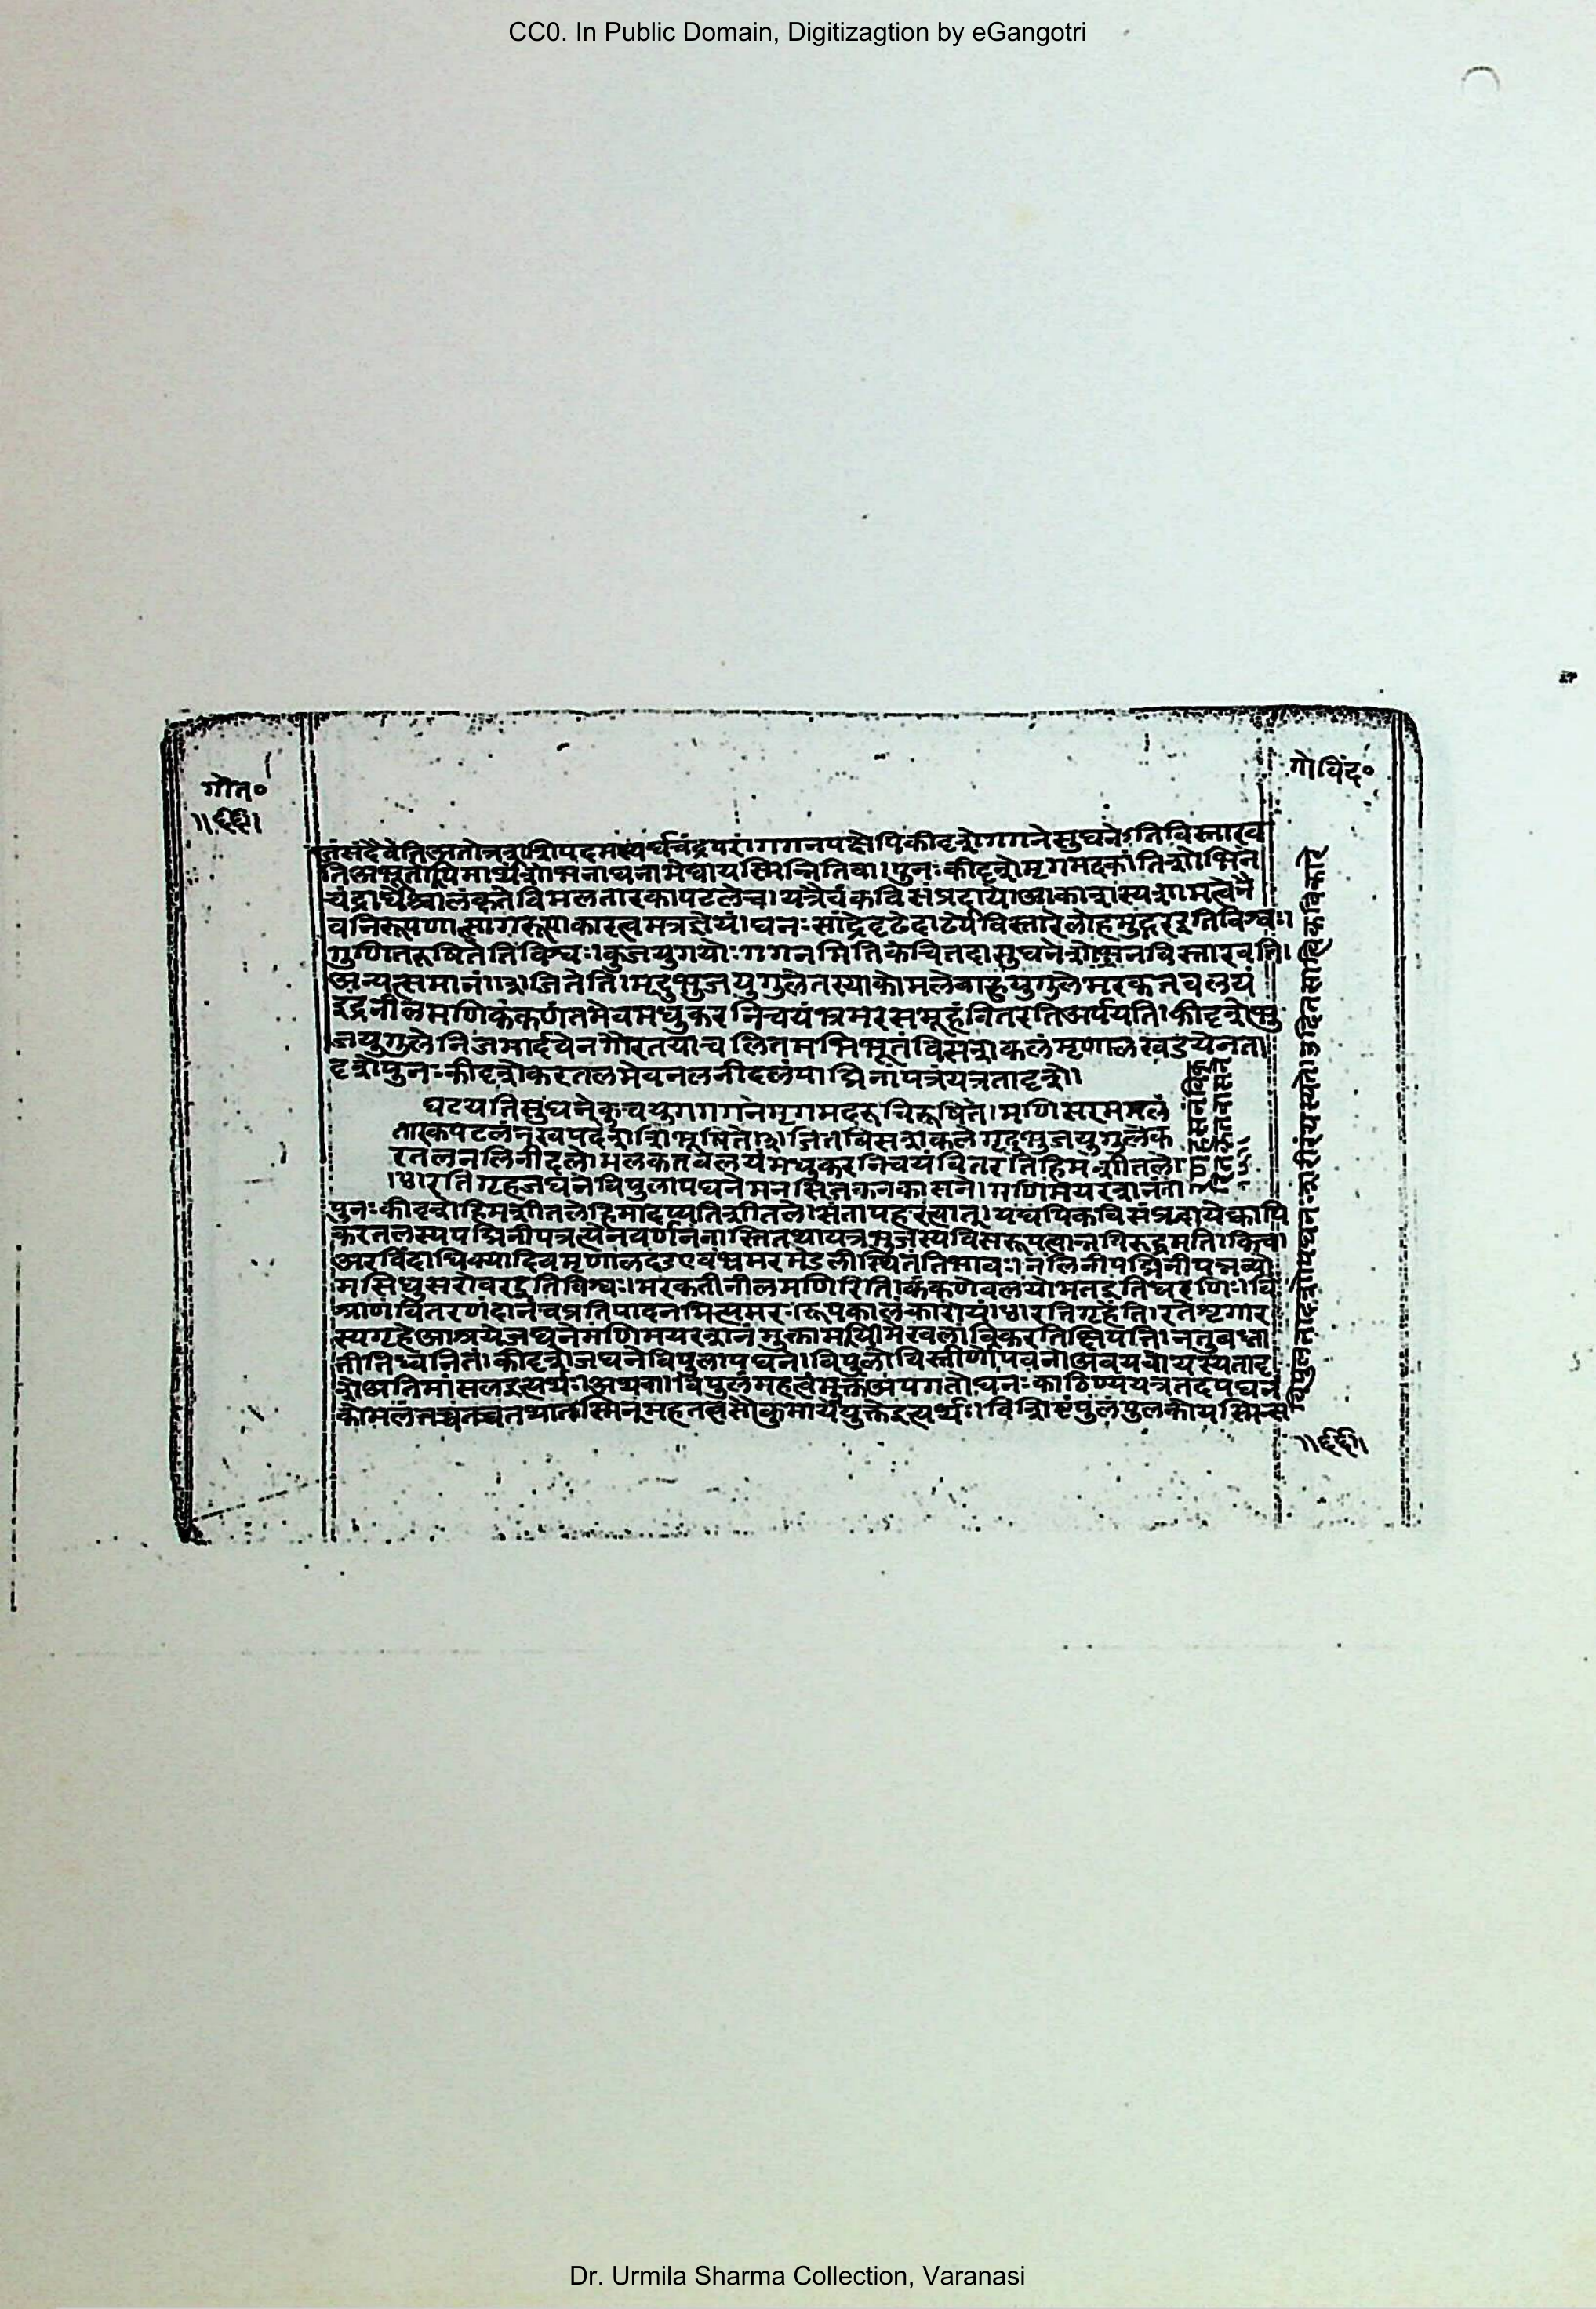 CC0. In Public Domain, Digitizagtion by eGangotri
गीत०
॥६६॥
गोविंद०
तिअभूतोपिमाधीशोभनाघनामेघायस्मिन्नितिवा।पुनःकीदृशेमृगमदकांतिशोभिने
चंद्राघैश्चालंकृतेविमलतारकापटलेच।यत्रैवंकविसंप्रदायः।आकाशस्यशगमत्वेनै
वनिरूपणात्सागरूप्याकारत्वमत्रज्ञेयं।घनःसांद्रेदृढेदाढर्येविस्तारेलोहमुद्गरइतिविश्वः।
गुणितरूषितेतिविश्वः।कुजयुगयोःगगनमितिकेचित्तदासुघनेशोभनविस्तारवति।
अन्यत्समानं।।जितेति।मृदुभुजयुगुलेतस्याकोमलेबाहुयुगुलेमरकतवलयं
इंद्रनीलमणिकंकणंतमेवमधुकरनिचयंभ्रमरसमूहंवितरतिअर्पयति।कीदृशेभु
जयुगुलेनिजमार्दवेनगौरतयाचलितमभिभूतंबिसशकलंमृणालखंडंयेनता
दृशेपुनःकीदृशेकरतलमेवनलनीदलंपद्मिनीपत्रंयत्रतादृशे।
घटयतिसुघनेकुचयुगगगनेमृगमदरुचिरूषिते।मणिसरममलं
तारकपटलंनखपदशशिभूषिते।।जितबिसशकलेमृदुभुजयुगुलेक
रतलनलिनीदले।मलकतवलयंमधुकरनिचयंवितरतिहिमशीतले।
।४।रतिगृहजघनेविपुलापघनेमनसिजकनकासने।मणिमयरशनंता
पुनःकीदृशेहिमशीतलेहिमादप्यतिशीतले।संतापहरत्वात्।यद्यपिकविसंप्रदायेक्वापि
करतलस्यपद्मिनीपत्रत्वेनवर्णनंनास्तितथाप्यत्रभुजस्यबिसरूपत्वान्नविरुद्धमति।किंवा
अरविंदाधिक्यादिवमृणालदंडएवंभ्रमरमंडलीस्थितेतिभावः।नलिनीपद्मिनीपद्मव्यो
मसिंधुसरोवरइतिविश्वः।मरकतीनीलमणिरिति।कंकणेवलयोभतइतिधरणिः।वि
श्राणंवितरणंदानंचप्रतिपादनमित्यमरः।रूपकालंकारोयं।४।रतिगृहेति।रतेशृंगार
स्यगृहेआश्रयेजघनेमणिमयरशनंमुक्तामयीमेखलांविकरतिक्षिपति।नतुबध्ना
तीतिध्वनितं।कीदृशेजघनेविपुलापघने।विपुलोविस्तीर्णोपघनोअवयवोयस्यतादृ
शेअतिमांसलइत्यर्थः।अथवा।विपुलंमहत्वंमुक्तंअपगतोघनःकाठिण्यंयत्रतदपघनं
कोमलंतच्चतच्चतथातस्मिन्महतत्वसौकुमार्ययुक्तेइत्यर्थः।विशिष्टंपुलंपुलकोयस्मिन्स
॥६६॥
Dr. Urmila Sharma Collection, Varanasi